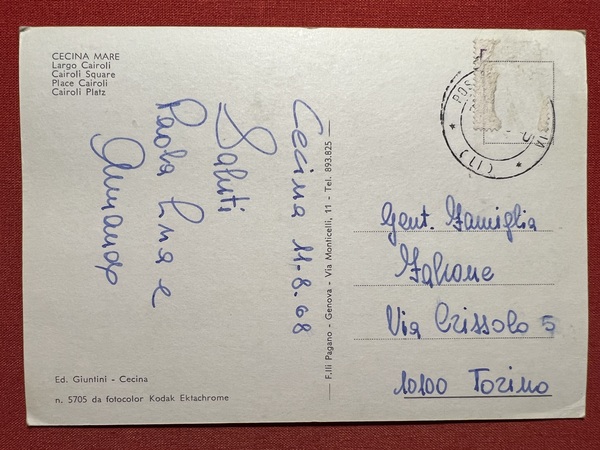 CECINA MARE
Largo Cairoli
Cairoli Square
Place Cairoli
Cairoli Platz
Cecina 11-8-68
Saluti
Paola Lina e
Armando
F.lli Pagano - Genova - Via Monticelli, 11 - Tel. 893.825
Gent. Famiglia
Falcone
Via Crissolo 5
10100 Torino
Ed. Giuntini - Cecina
n. 5705 da fotocolor Kodak Ektachrome